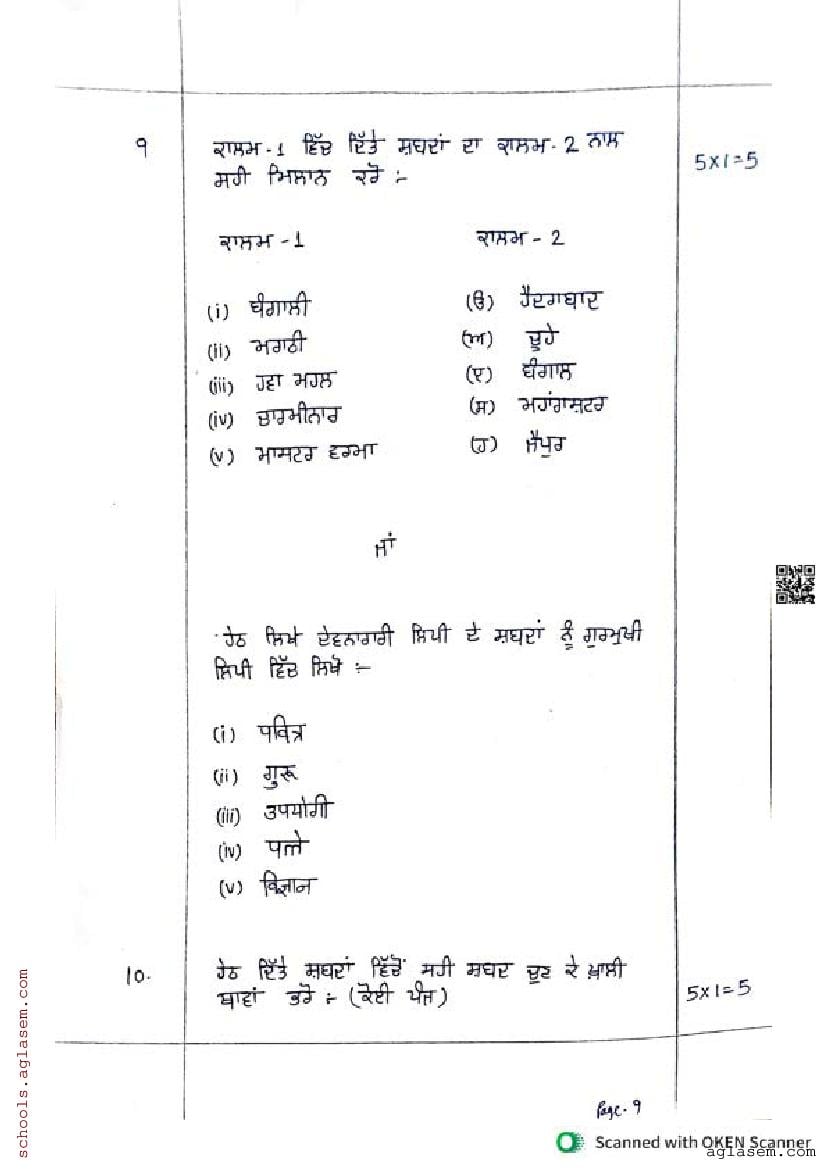 9 ਕਾਲਮ-1 ਵਿੱਚ ਦਿੱਤੇ ਸ਼ਬਦਾਂ ਦਾ ਕਾਲਮ-2 ਨਾਲ 5x1=5
ਸਹੀ ਮਿਲਾਨ ਕਰੋ :-
ਕਾਲਮ -1 ਕਾਲਮ - 2
(i) ਬੰਗਾਲੀ (ੳ) ਹੈਦਰਾਬਾਦ
(ii) ਮਰਾਠੀ (ਅ) ਚੂਹੇ
(iii) ਹਵਾ ਮਹਲ (ੲ) ਬੰਗਾਲ
(iv) ਚਾਰਮੀਨਾਰ (ਸ) ਮਹਾਂਰਾਸ਼ਟਰ
(v) ਮਾਸਟਰ ਵਰਮਾ (ਹ) ਜੈਪੁਰ
ਜਾਂ
ਹੇਠ ਲਿਖੇ ਦੇਵਨਾਗਾਰੀ ਲਿਪੀ ਦੇ ਸ਼ਬਦਾਂ ਨੂੰ ਗੁਰਮੁਖੀ
ਲਿਪੀ ਵਿੱਚ ਲਿਖੋ :-
(i) पवित्र
(ii) गुरू
(iii) उपयोगी
(iv) पत्ते
(v) विज्ञान
10. ਹੇਠ ਦਿੱਤੇ ਸ਼ਬਦਾਂ ਵਿੱਚੋਂ ਸਹੀ ਸ਼ਬਦ ਚੁਣ ਕੇ ਖ਼ਾਲੀ
ਥਾਵਾਂ ਭਰੋ :- (ਕੋਈ ਪੰਜ) 5x1=5
Page-9
Scanned with OKEN Scanner
schools.aglasem.com
aglasem.com